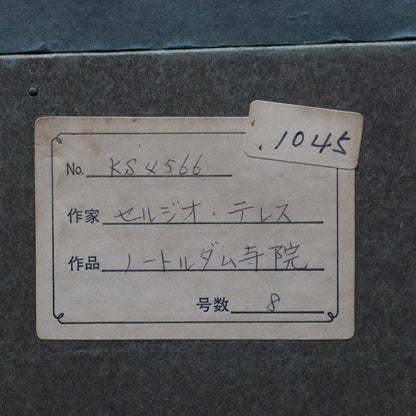 1045
No. KS4566
作家 セルジオ・テレス
作品 ノートルダム寺院
号数 8